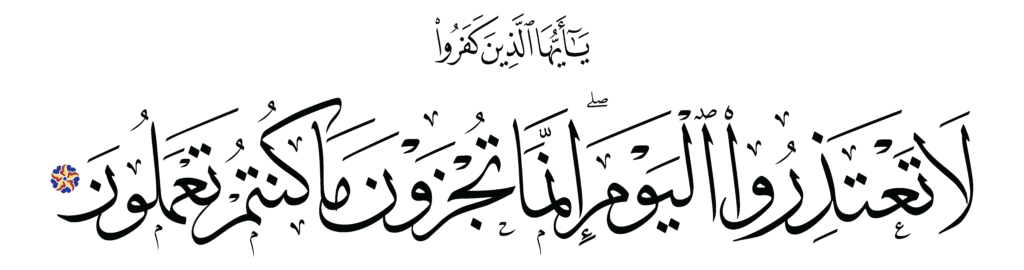 يَـٰٓأَيُّهَا ٱلَّذِينَ كَفَرُوا۟
لَا تَعْتَذِرُوا۟ ٱلْيَوْمَ ۖ إِنَّمَا تُجْزَوْنَ مَا كُنتُمْ تَعْمَلُونَ